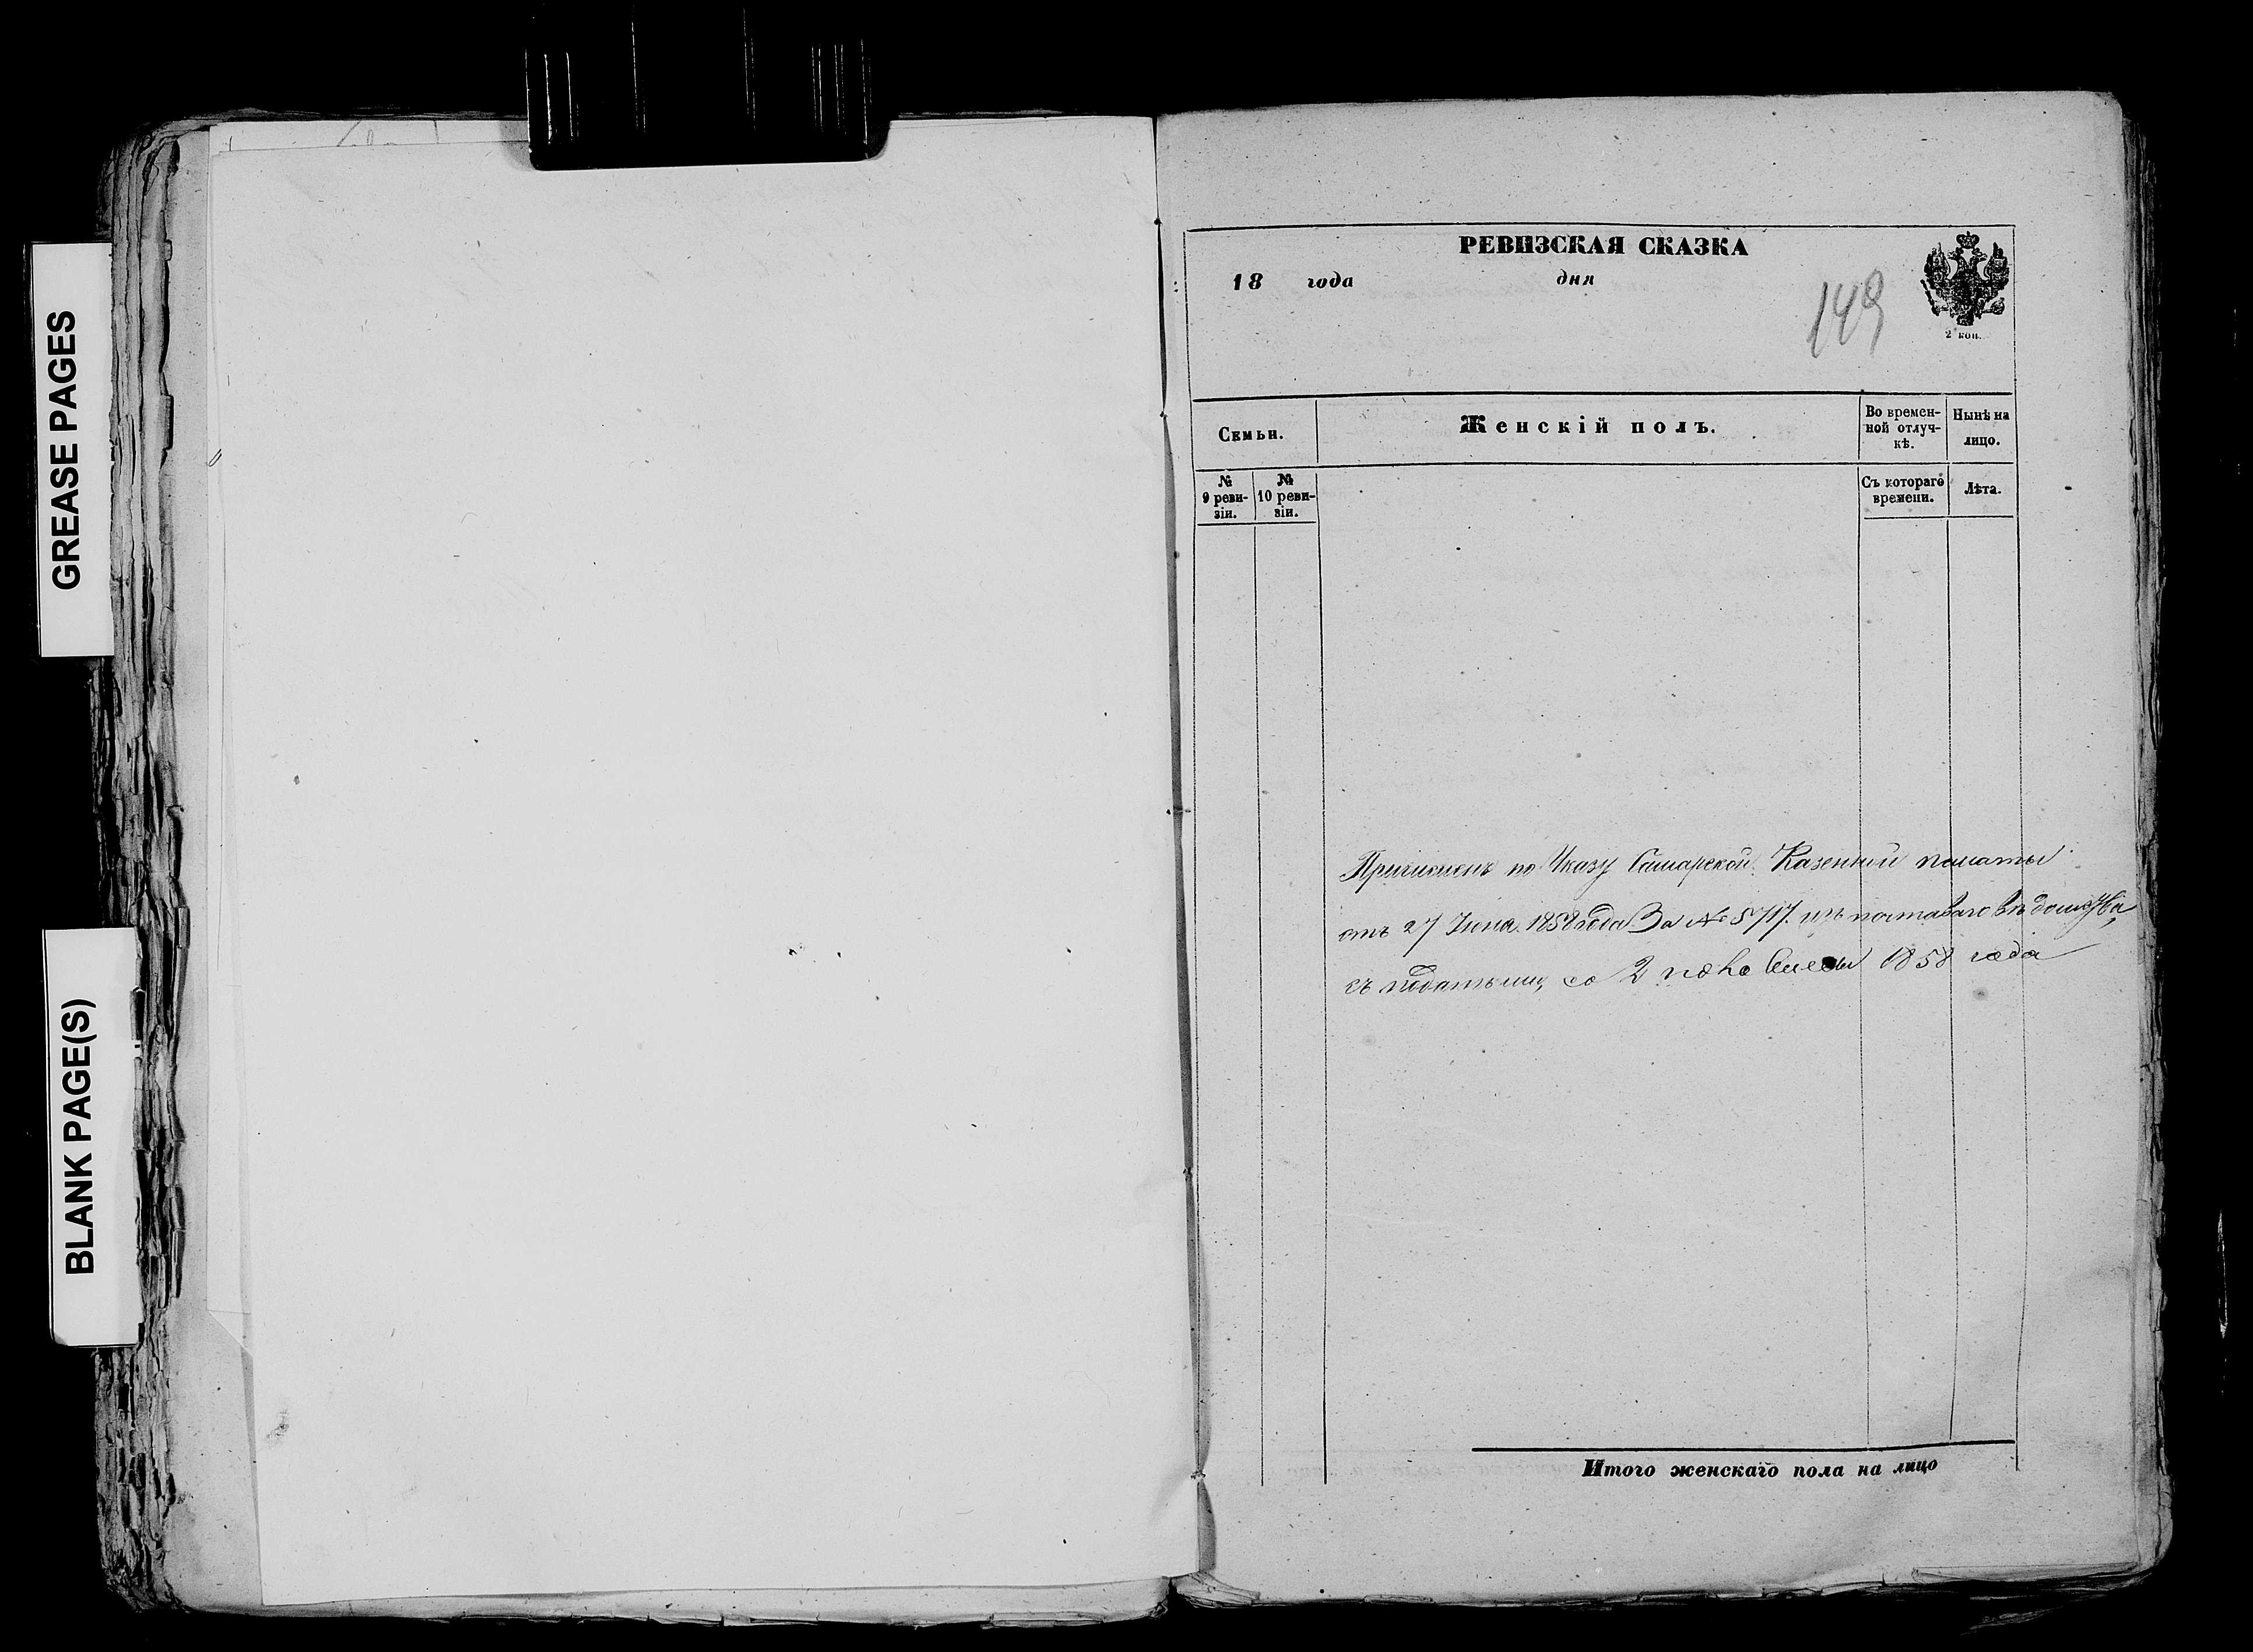 GREASE PAGES
BLANK PAGE(S)
РЕВИЗСКАЯ СКАЗКА
18 года дня
149
2 коп.
Семьи.
Женскій полъ.
Во времен-
ной отлуч-
кѣ.
Нынѣ на
лицо.
№
9 реви-
зіи.
№
10 реви-
зіи.
Съ котораго
времени.
Лѣта.
Причисленъ по Указу Самарской Казенной палаты
отъ 27 Июня 1858 года За № 5717. изъ почтаваго вѣдомства,
съ податьми, со 2 половины 1858 года
Итого женскаго пола на лицо